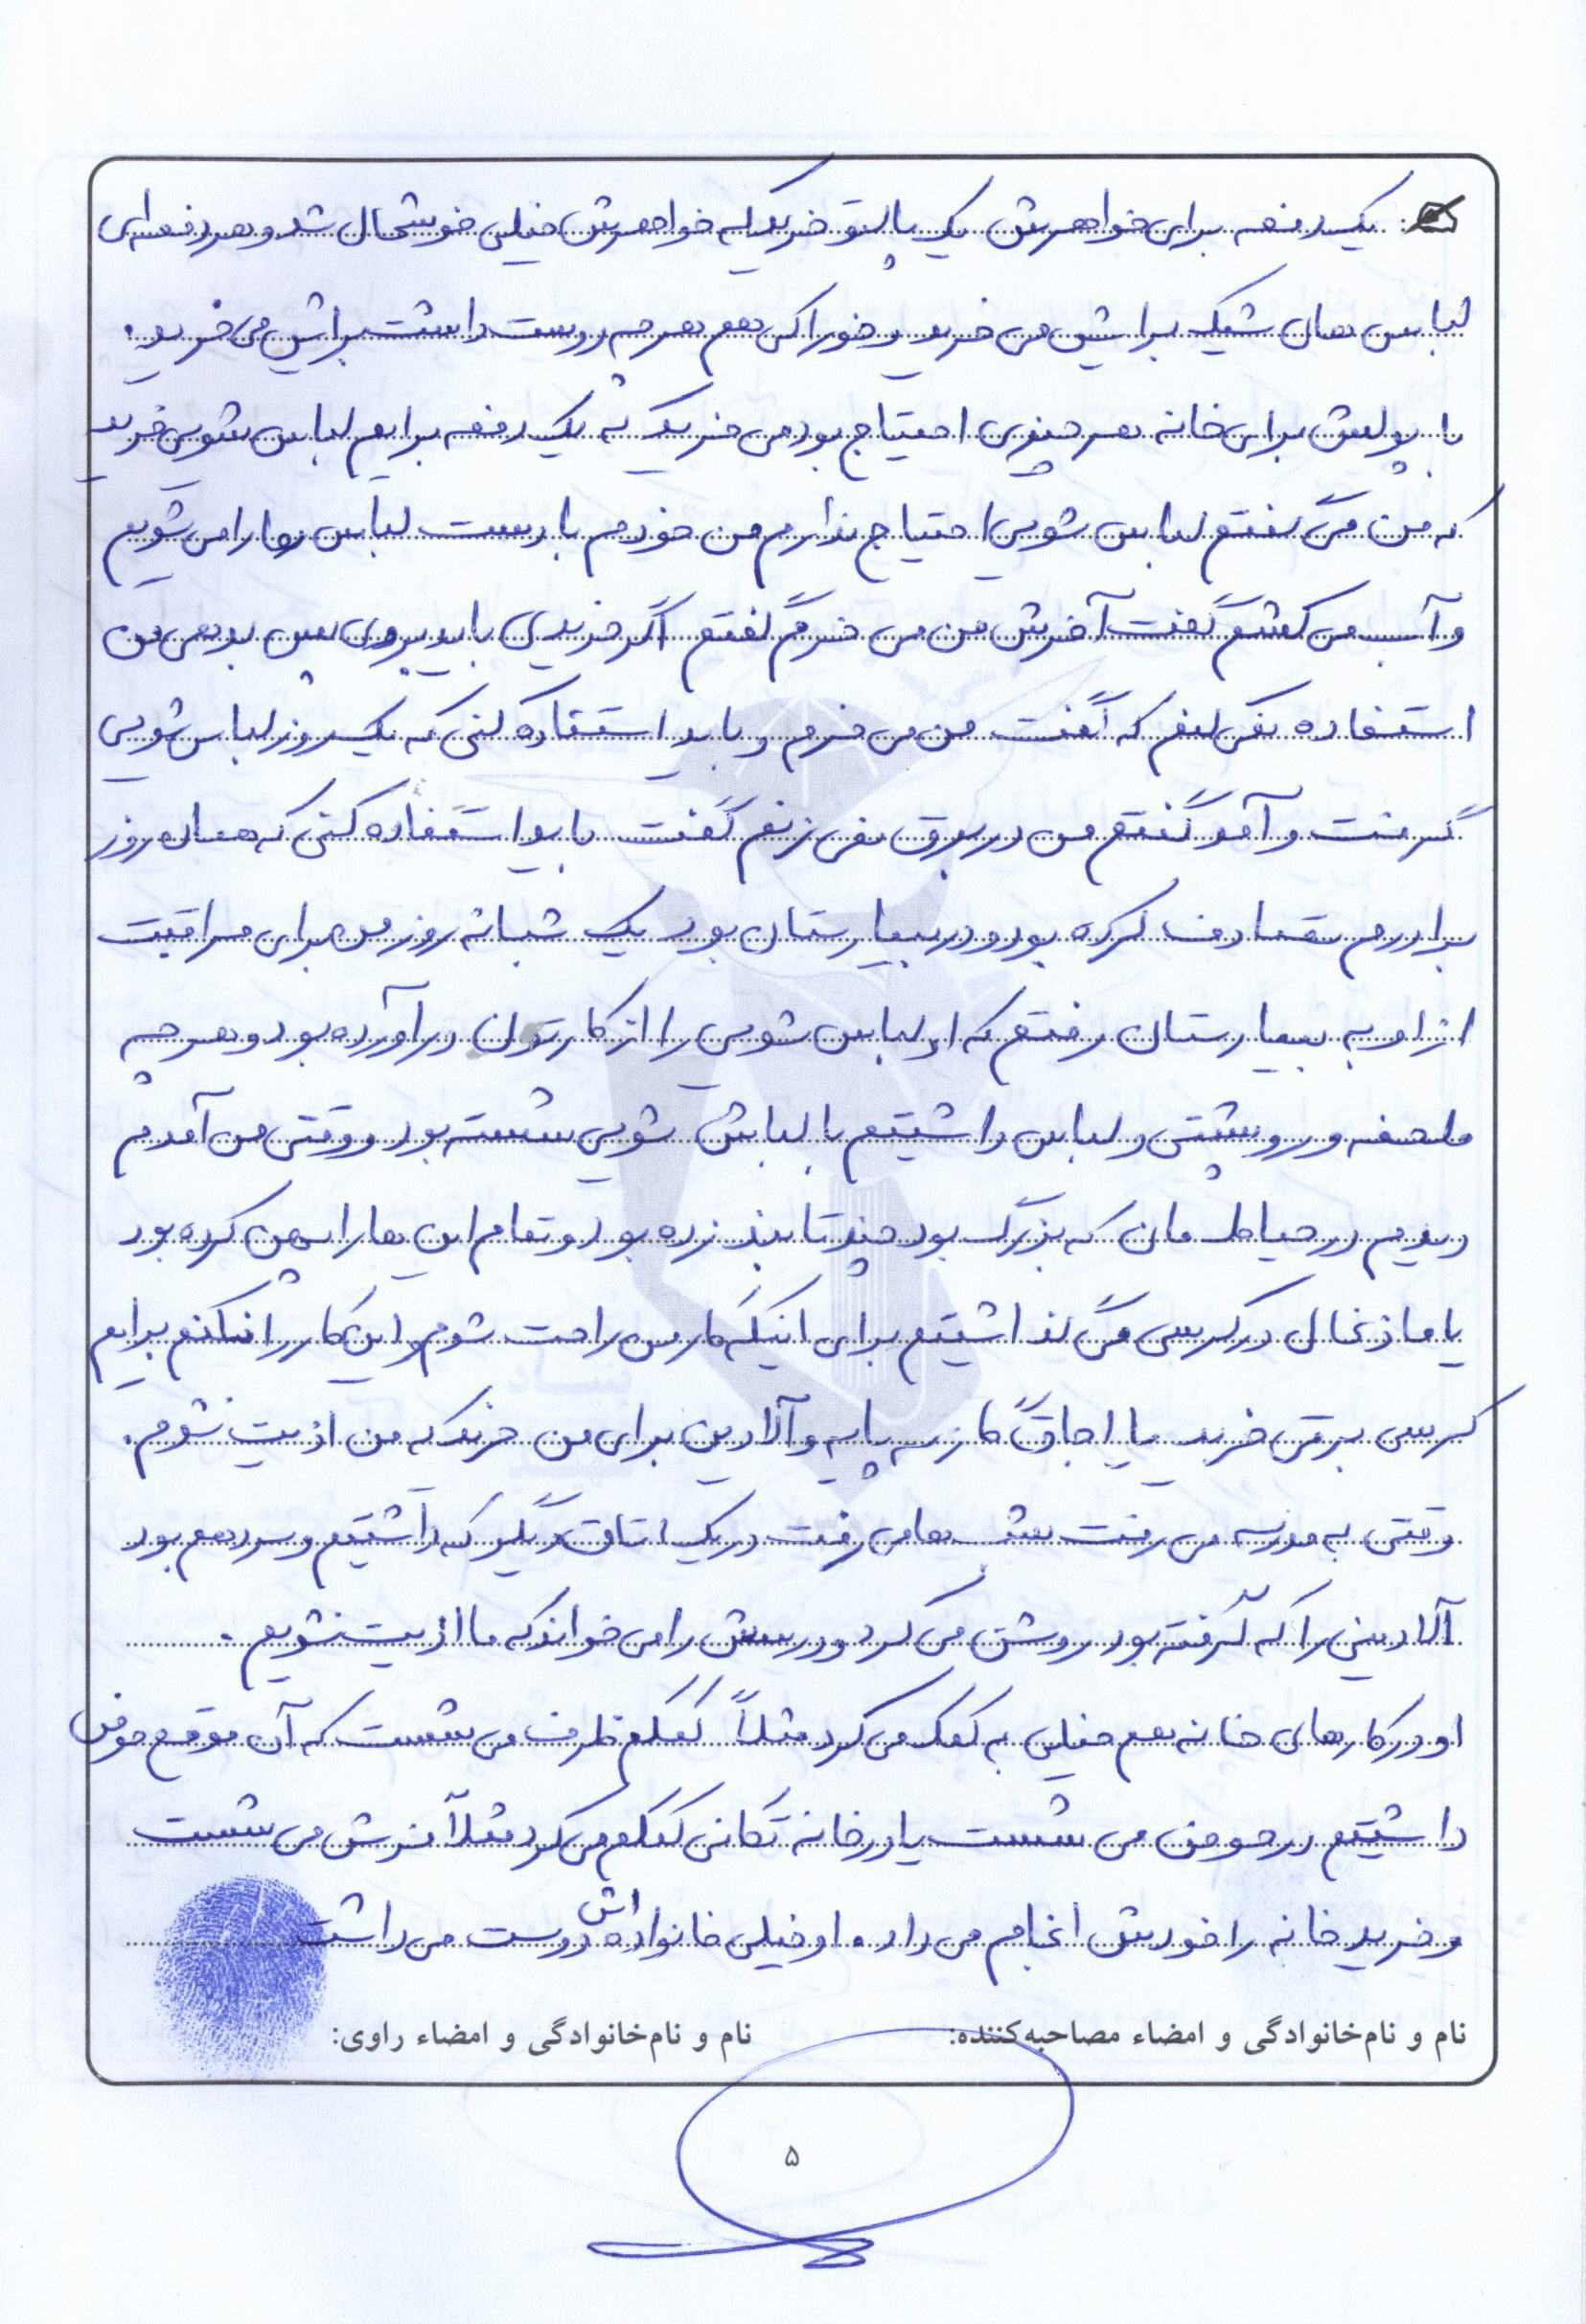 یک دفعه برای خواهرش یک پالتو خرید که خواهرش خیلی خوشحال شد و هر دفعه ای
لباس های شیک برایش می خرید و خوراکی هم هر چه دوست داشت برایش می خرید.
با پولش برای خانه هر چیزی احتیاج بود می خرید که یک دفعه برایم لباس شویی خرید
که من می گفتم لباس شویی احتیاج ندارم من خودم با دست لباس ها را می شویم
و آب می کشم گفت آخرش من می خرم گفتم اگر خریدی باید ببری پس بدهی من
استفاده نمی کنم که گفت من می خرم و باید استفاده کنی که یک روز لباس شویی
گرفت و آمد گفتم من در برق نمی زنم گفت باید استفاده کنی که همان روز
برادرم تصادف کرده بود و در بیمارستان بود یک شبانه روز من برای مراقبت
از او به بیمارستان رفتم که او لباس شویی را از کارتون درآورده بود و هر چه
ملحفه و روپشتی و لباس داشتیم با لباش شویی شسته بود و وقتی من آمدم
دیدم در حیاط مان که بزرگ بود چند تا بند زده بود و تمام این ها را پهن کرده بود
یا ما ذغال در کرسی می گذاشتیم برای اینکه کار من راحت شوم و این کار را نکنم برایم
کرسی برقی خرید یا اجاق گاز سه پایه و آلادین برای من خرید که من اذیت نشوم.
وقتی به مدرسه می رفت شب ها می رفت در یک اتاق دیگر که داشتیم و سرد هم بود
آلادینی را که گرفته بود روشن می کرد و درسش را می خواند که ما اذیت نشویم.
او در کارهای خانه هم خیلی به کمک می کرد مثلاً کمکم ظرف می شست که آن موقع حوض
داشتیم در حوض می شست یا در خانه تکانی کمکم می کرد مثلاً فرش می شست
و خرید خانه را خودش انجام می داد. او خیلی خانواده اش دوست می داشت
نام و نام خانوادگی و امضاء مصاحبه کننده: نام و نام خانوادگی و امضاء راوی:
۵